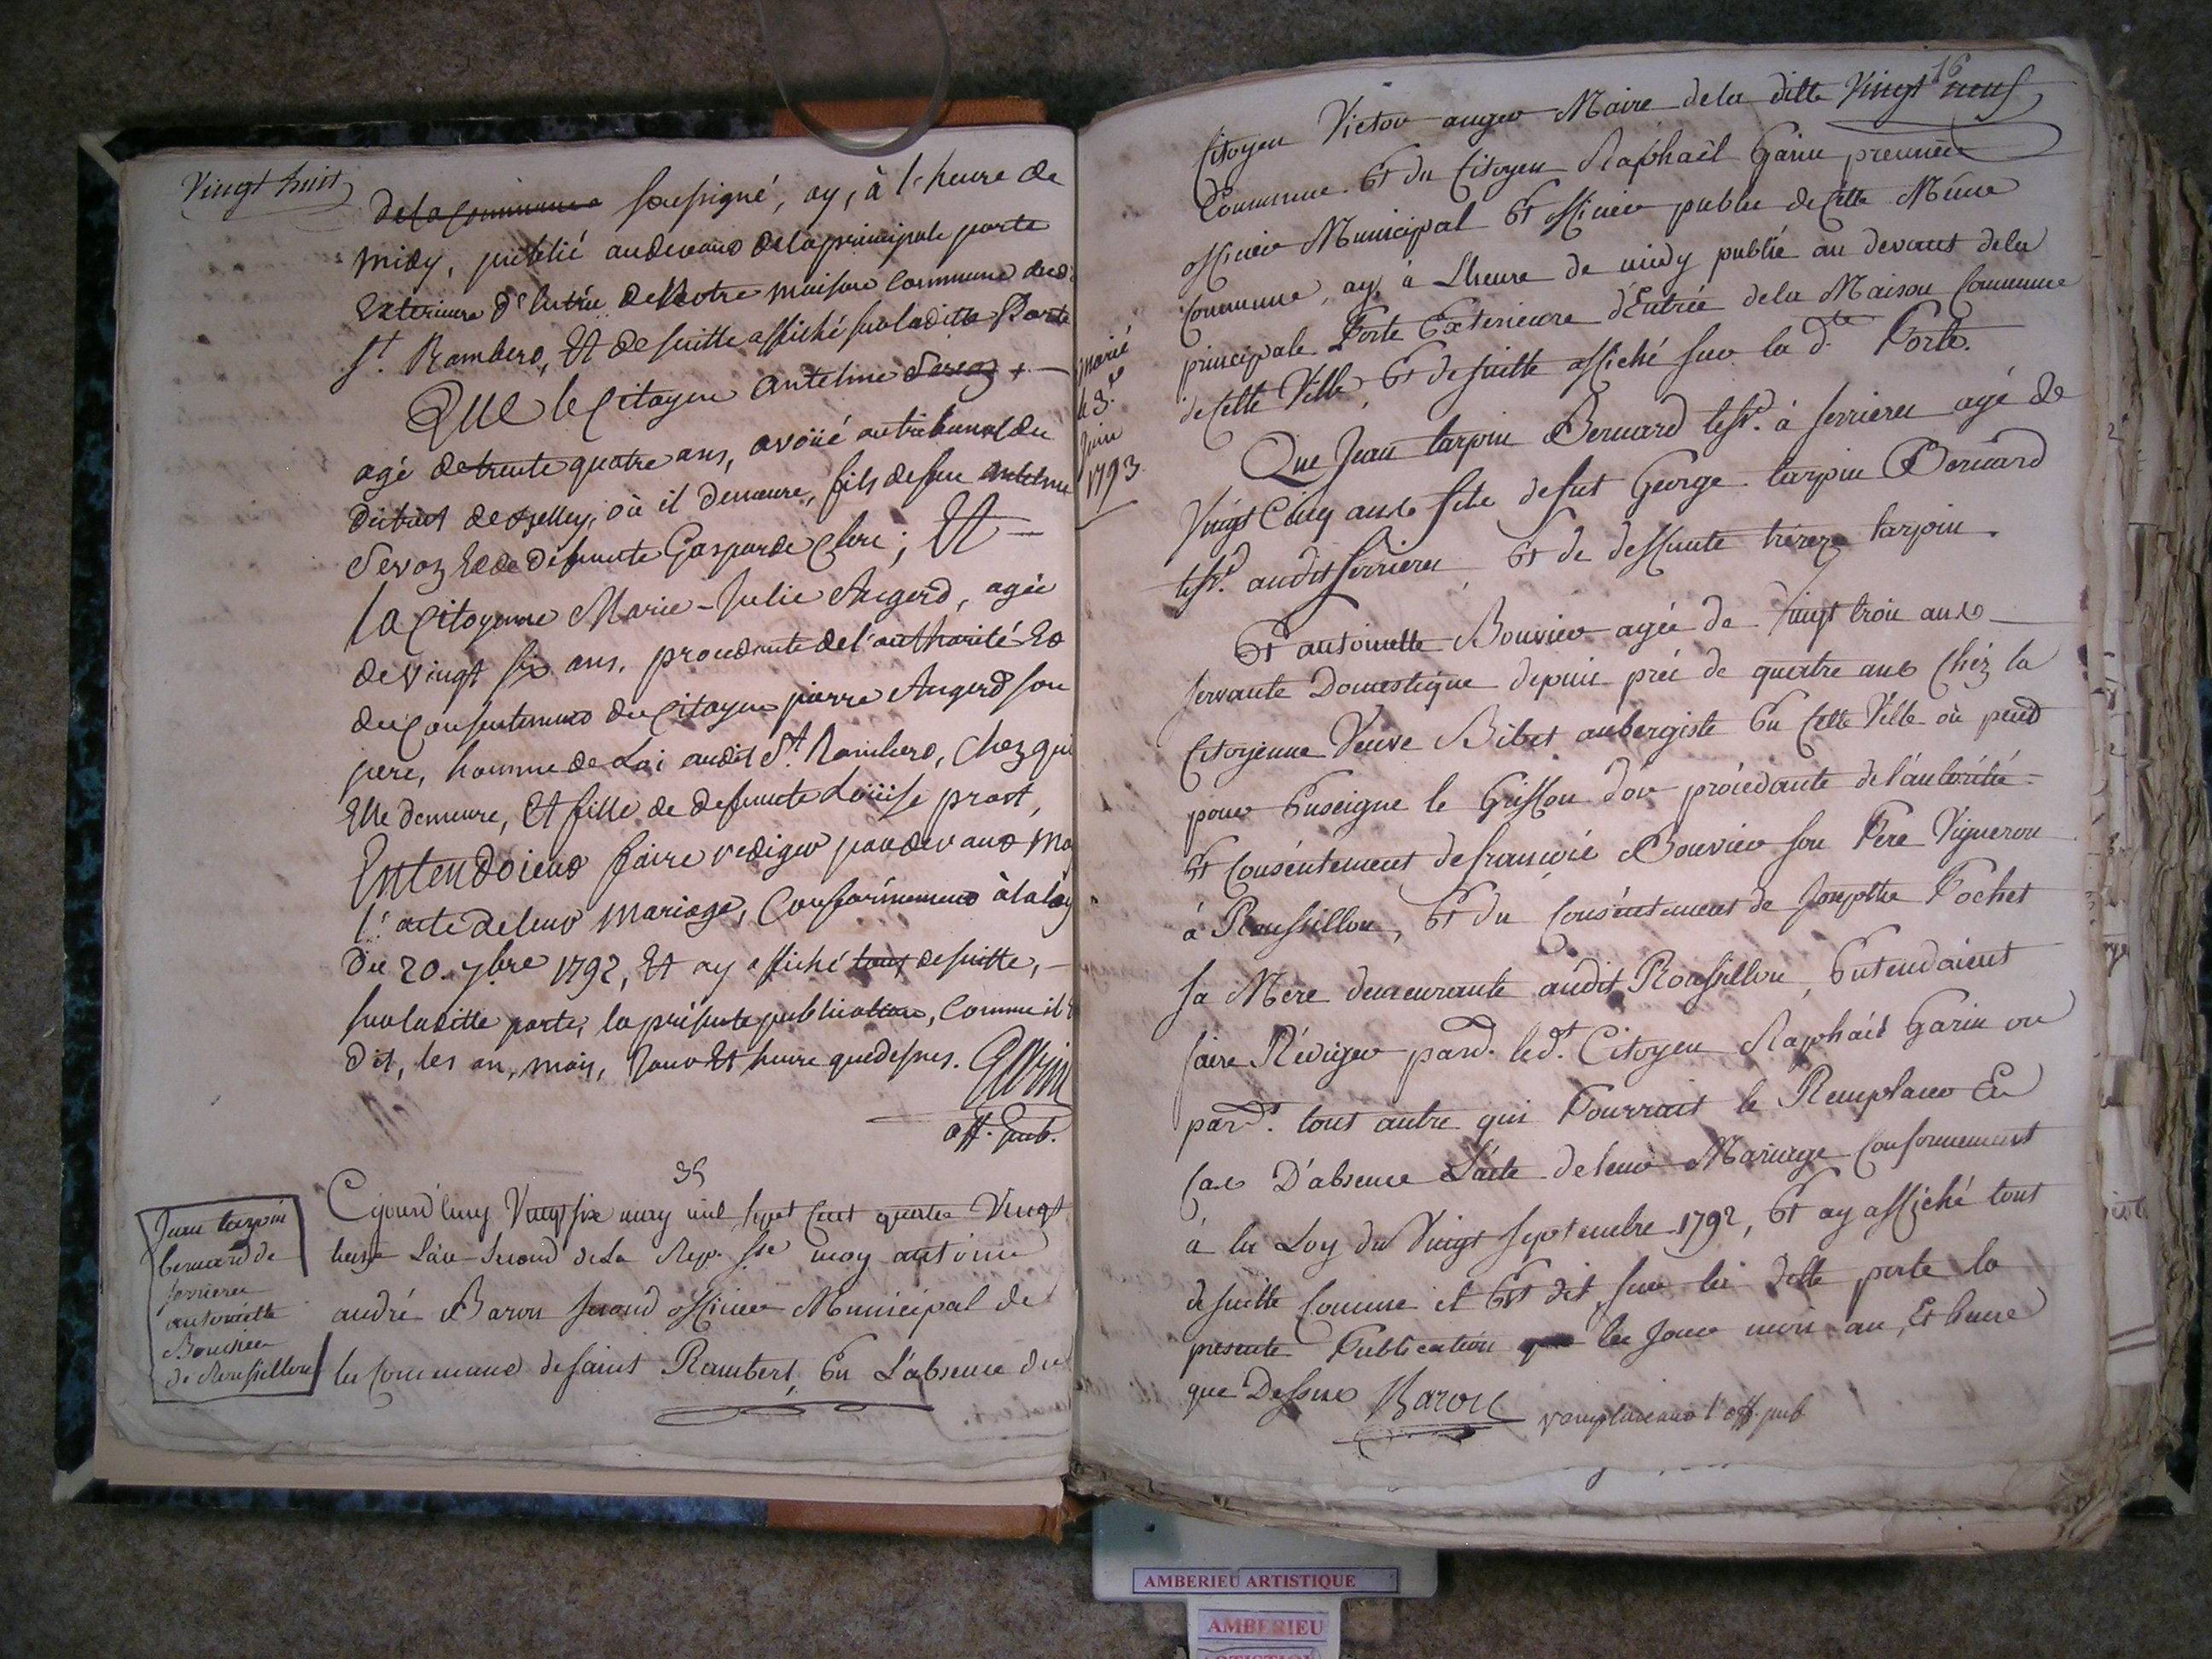 Vingt huit
de la commune soussigné, ay, à l'heure de
midy, publié audevans de la principale porte
Exterieure d'Entrée de Notre maison Commune dud.
St. Rambers, Et de suitte affiché sur laditte Porte
Que le Citoyen antelme Sevoz +
agé de trente quatre ans, avoüé au tribunal du
district de Belley, où il demeure, fils de feu antelme
Sevoz Et de defunte Gasparde Clerc ; Et
la Citoyenne Marie-Julie Augerd, agée
de vingt six ans, procedante de l'authorité Et
du Consentemens du Citoyen pierre Augerd son
pere, homme de Loi audit St. Rambers, Chez qui
Elle demeure, Et fille de defunte Loüise prost,
Entendoiens faire rediger pardevans moi
l'acte de leur mariage, Conformémens à la loy
du 20. 7bre 1792, Et ay affiché tout de suitte,
sur laditte porte, la présente publication, Comme il E
dit, les an, mois, Jour Et heure que dessus. Garin
off. pub.
35
Jean tarpin
bernard de
serrieres
antoinette
Bouvier
de Roussillon
Cejourdhuy Vingt six may mil sept Cent quatre Vingt
treize L'an Second de La Rep. fse moy antoine
andré Baron second officier Municipal de
la Commune de saint Rambert, En L'absence du
marié
le 3.
Juin
1793.
16
Vingt neuf
Citoyen Victor auger Maire de la ditte
Commune Et du Citoyen Raphaël Garin premier
officier Municipal Et officier public de Cette Même
Commune, ay, à Lheure de midy publié au devant de la
principale Porte Exterieure d'Entrée de la Maison Commune
de Cette Ville, Et de suitte affiché sur la dte Porte.
Que Jean tarpin Bernard lesd. à serrieres agé de
Vingt Cinq ans fils de fut George tarpin Bernard
lesd. audit serrieres Et de deffunte térèze tarpin.
Et antoinette Bouvier agée de Vingt trois ans
servante Domestique depuis près de quatre ans Chez la
Citoyenne Veuve Bibet aubergiste En Cette Ville où pend
pour Enseigne le Griffon d'or procédante de l'autorité
Et Conséntement de françois Bouvier son Pere Vigneron
à Roussillon, Et du Conséntement de Josepthe Pochet
sa Mere demeurante audit Roussillon, Entendaient
faire Rédiger pard. led. Citoyen Raphaël Garin ou
pard. tout autre qui Pourrait le Remplacer En
Cas D'absence L'acte de leur Mariage Conformement
à la Loy du Vingt septembre 1792, Et ay affiché tout
de suitte Comme il Est dit, sur la ditte porte la
presente Publication les Jour mois an, Et heure
que Dessus Baron remplacans l'off. pub
AMBERIEU ARTISTIQUE
AMBERIEU
ARTISTIQUE